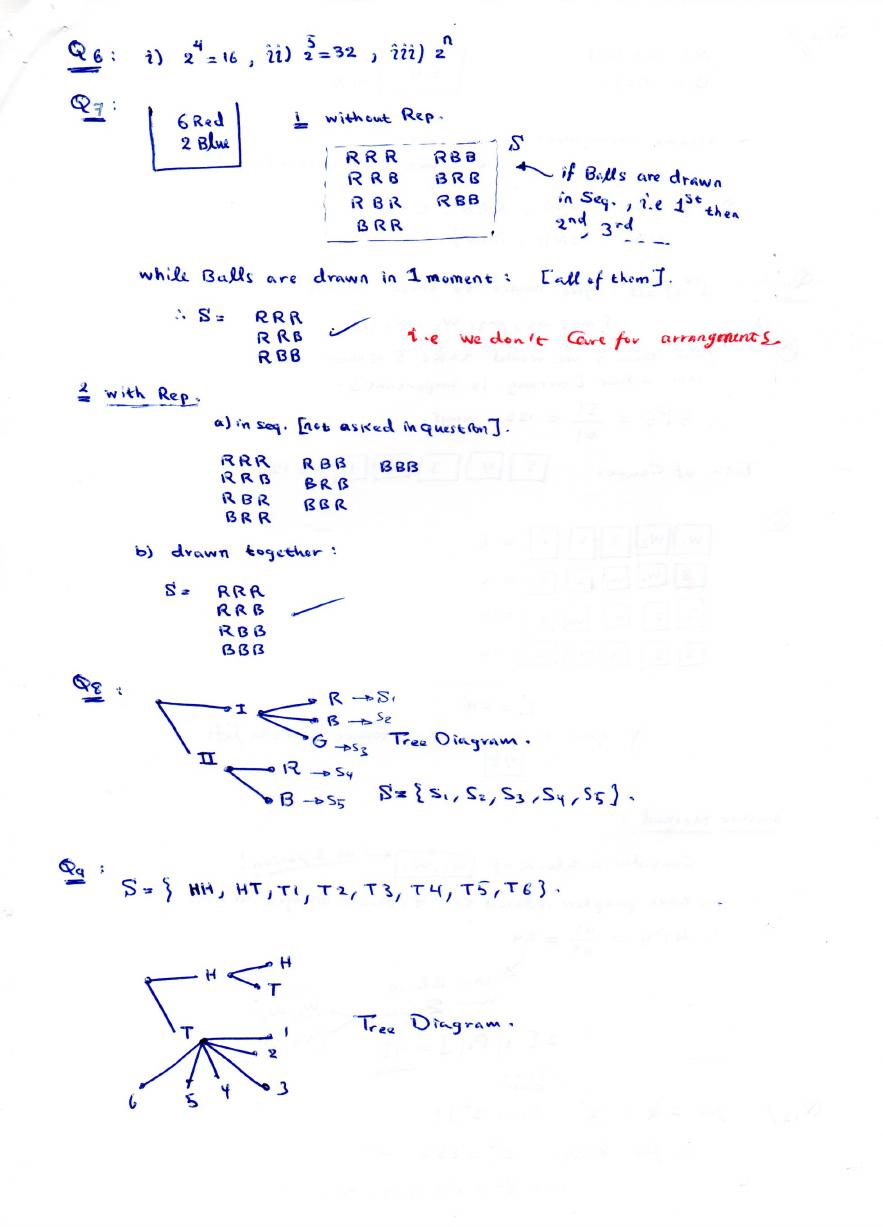 Q6: i) 2^4 = 16 , ii) 2^5 = 32 , iii) 2^n
Q7:
6 Red
2 Blue
1 without Rep.
S
RRR RBB
RRB BRB
RBR RBB
BRR
if Balls are drawn
in Seq., i.e 1st then
2nd, 3rd ----
while Balls are drawn in 1 moment : [all of them].
∴ S = RRR
RRB
RBB
i.e we don't Care for arrangements
2 with Rep.
a) in seq. [not asked in question].
RRR RBB BBB
RRB BRB
RBR BBR
BRR
b) drawn together :
S = RRR
RRB
RBB
BBB
Q8 :
I
R → S1
B → S2
G → S3
Tree Diagram.
II
R → S4
B → S5
S = { S1, S2, S3, S4, S5 }.
Q9 :
S = { HH, HT, T1, T2, T3, T4, T5, T6 }.
H
H
T
T
1
2
3
4
5
6
Tree Diagram.